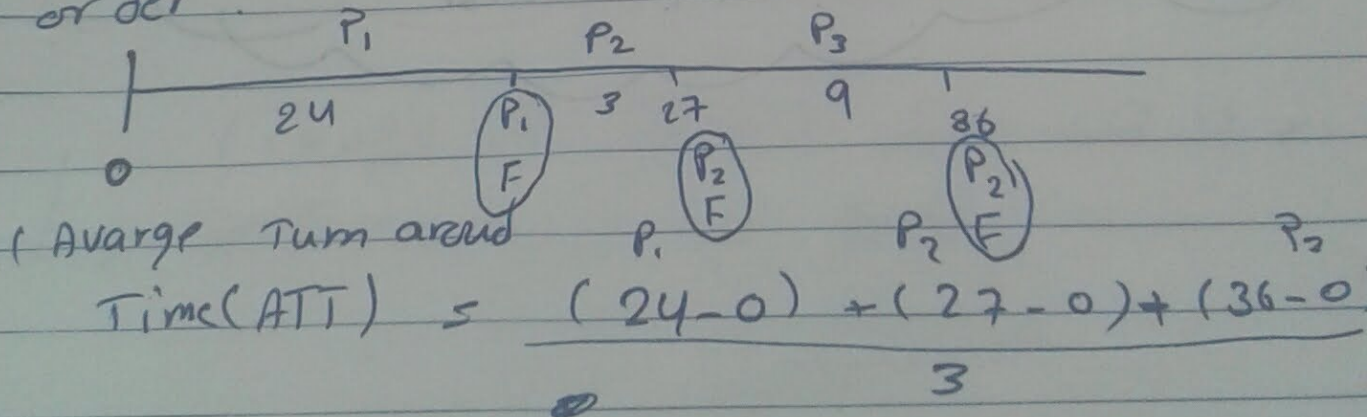 or
P1 P2 P3
24 P1 3 27 9 36
0 F P2 P2
F F
( Avarge Turn around P1 P2 P2
Time(ATT) = (24-0) + (27-0) + (36-0
3